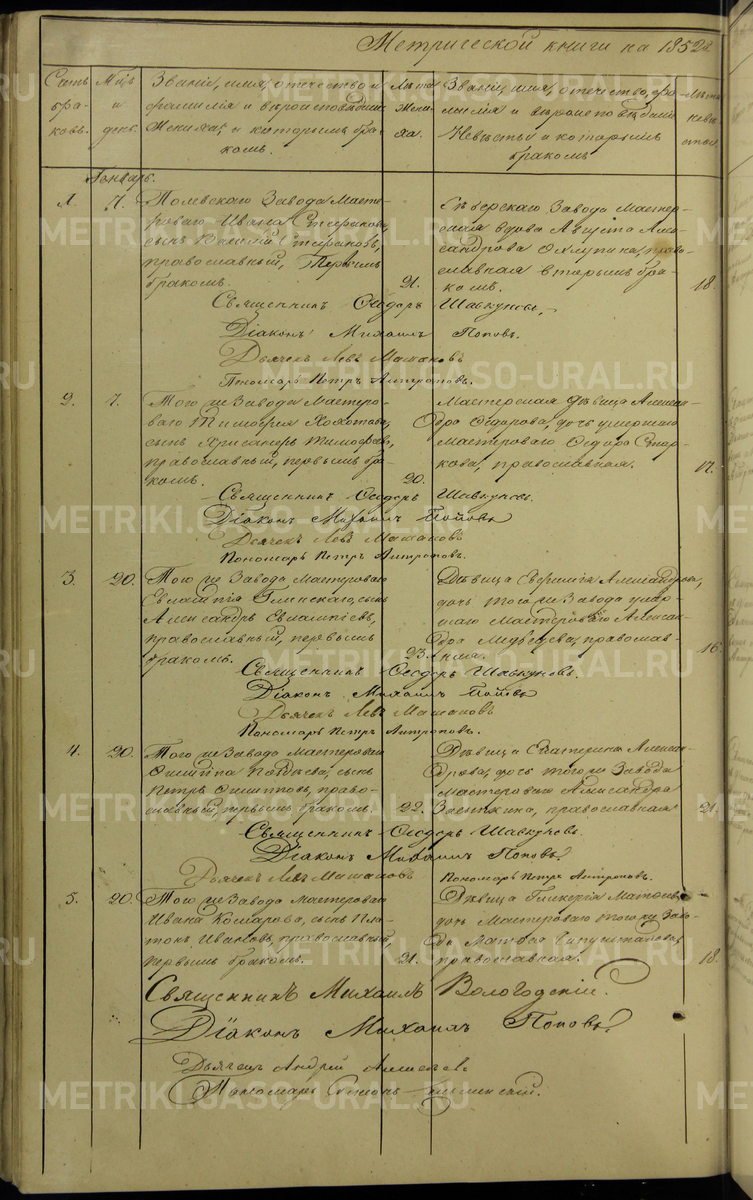 Метрической книги на 1852й
Счетъ бра- ковъ.
М-цъ и день.
Званiе, имя, отечество и фамилiя и вѣроисповѣданiе Жениха, и которымъ бра- комъ.
Лѣта Жени- ха.
Званiе, имя, отечество, фа- милiя и вѣроисповѣданiе Невѣсты и которымъ бракомъ
Лѣта невѣ- сты.
Генварь.
1. 7.
Полевскаго Завода Масте-
роваго Ивана Стефанова,
сынъ Василiй Стефановъ,
православный, Первымъ
бракомъ. 21.
Сѣверскаго Завода Мастер-
ская вдова Августа Алек-
сандрова право-
славная вторымъ бра-
комъ. 18.
Священникъ Ѳеодоръ Шавкуновъ.
Дiаконъ Михаилъ Поповъ.
Дьячекъ Левъ Машановъ
Пономарь Петръ Антроповъ.
2. 7.
Того же Завода Мастеро-
ваго Тимофея
сынъ Хрисанѳъ Тимофеевъ,
православный, первымъ бра-
комъ. 20.
Мастерская дѣвица Алексан-
дра Ѳедорова, дочь умершаго
Мастероваго Ѳедора
православная. 17.
Священникъ Ѳеодоръ Шавкуновъ.
Дiаконъ Михаилъ Поповъ
Дьячекъ Левъ Машановъ
Пономарь Петръ Антроповъ.
3. 20.
Того же Завода Мастероваго
Евлампiя Глинскаго, сынъ
Александръ Евлампiевъ,
православный, первымъ
бракомъ. 23
Дѣвица Александрова,
дочь того же Завода умер-
шаго Мастероваго Алексан-
дра Медвѣдева, православ-
ная. 16.
Священникъ Ѳеодоръ Шавкуновъ.
Дiаконъ Михаилъ Поповъ
Дьячекъ Левъ Машановъ
Пономарь Петръ Антроповъ.
4. 20.
Того же Завода Мастероваго
сынъ
Петръ право-
славный, первымъ бракомъ. 22.
Дѣвица Екатерина Алексан-
дрова, дочь того же Завода
Мастероваго Александра
православная 21.
Священникъ Ѳеодоръ Шавкуновъ.
Дiаконъ Михаилъ Поповъ.
Дьячекъ Левъ Машановъ Пономарь Петръ Антроповъ.
5. 20.
Того же Завода Мастероваго
Ивана Комарова, сынъ Пла-
тонъ Ивановъ, православный,
первымъ бракомъ. 21.
Дѣвица Гликерiя
дочь Мастероваго того же Заво-
да
православная. 18.
Священникъ Михаилъ Вологодскiй.
Дiаконъ Михаилъ Поповъ.
Дьячекъ Андрей Алексѣевъ
Пономарь
METRIKI.GASO-URAL.RU